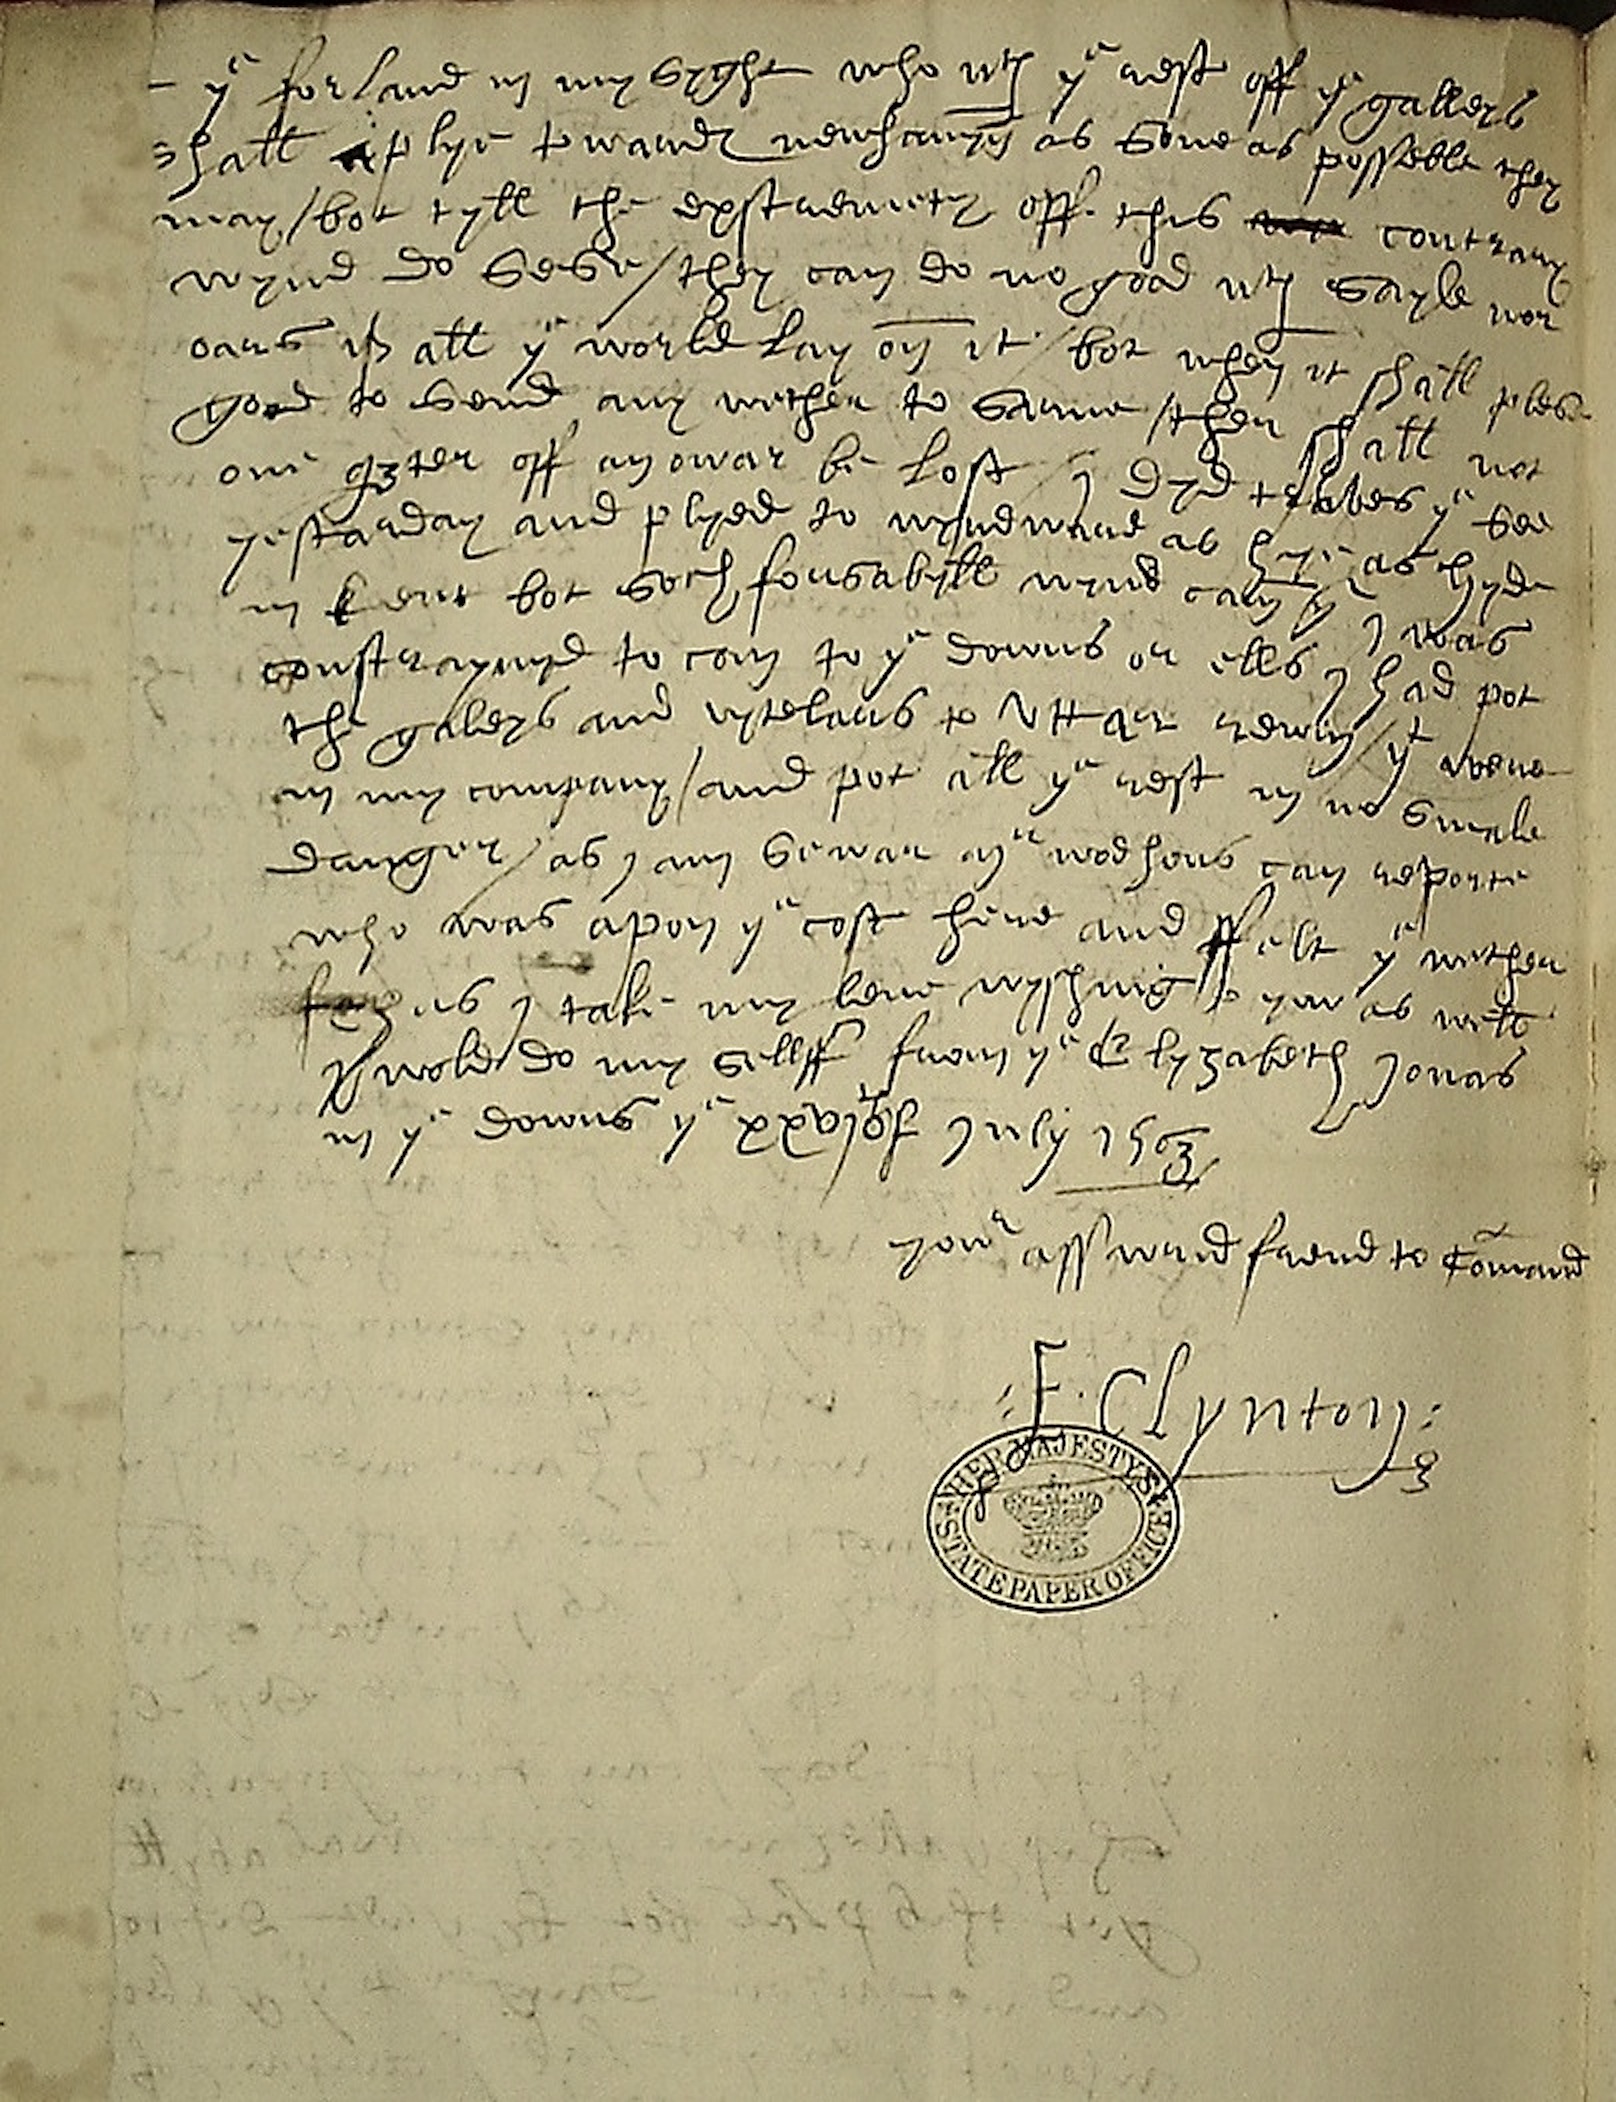 - ye forland in my syght who wth ye rest off ye galleys
shall aplye towardes newhavyn as sone as posseble they
may / bot tyll the exstremety off this contrary
wynd do sese / they can do no good wth sayle nor
oars yf all ye world lay on it / bot when it shall ples
god to send any wether to sarue / ther shall not
one qzter off an owar be lost / I dyd ye see
yestarday and plyed to wyndward as hye as hyde
in kent bot soch fowsabyll wynd cam yt I was
constraynyd to com to ye downs or ells I had pot
the galeys and vytelars to vttar rewin / yt were
in my company / and pot all ye rest in no smale
danger / as I am sewar mr wodhous can reporte
who was apon ye cost here and ffelt ye wether
thus I take my leve wyshing to yow as well
I wold do my sellff from ye Elyzabeth Jonas
in ye downs ye xxvjth of July 1563
yowr asswrid frend to comand
: E. Clynton :
HER MAJESTY'S
STATE PAPER OFFICE